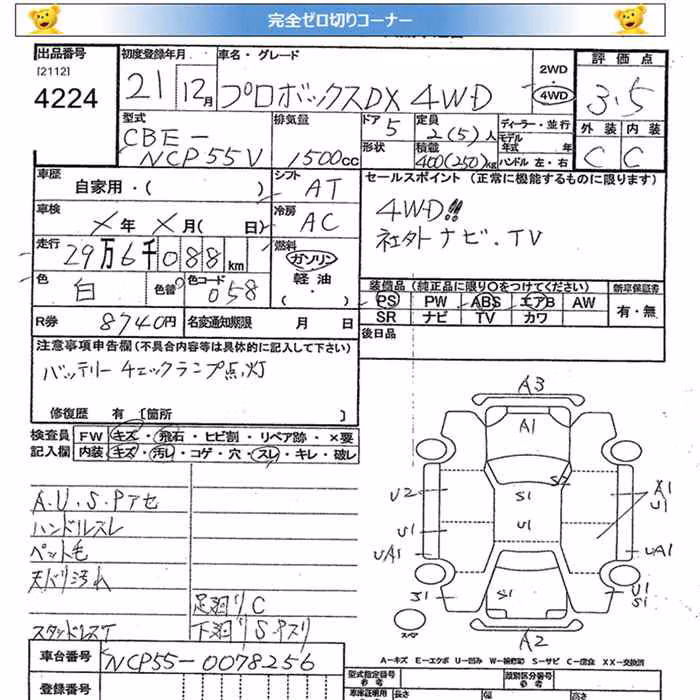 完全ゼロ切りコーナー
出品番号
[2112]
4224
初度登録年月
21 12月
車名・グレード
プロボックスDX 4WD
2WD
4WD
評価点
3.5
外装 内装
C C
型式
CBE-
NCP55V
排気量
1500cc
ドア 5
形状
定員
2(5)人
積載
400(250)kg
ディーラー・並行
モデル
年式 年
ハンドル 左・右
車歴
自家用・( )
シフト
AT
車検
×年 ×月( 日)
冷房
AC
走行
29万6千088km
燃料
ガソリン
軽油
( ・ )
色
白
色替
色コード
058
セールスポイント (正常に機能するものに限ります)
4WD!!
社外ナビ・TV
装備品(純正品に限り○をつけてください)
新車保証書
PS PW ABS エアB AW
SR ナビ TV カワ
有・無
R券 8740円 名変通知期限 月 日
後日品
注意事項申告欄(不具合内容等は具体的に記入して下さい)
バッテリーチェックランプ点灯
修復歴 有 [箇所 ]
検査員
記入欄
FW キズ・飛石・ヒビ割・リペア跡・×要
内装 キズ・汚レ・コゲ・穴・スレ・キレ・破レ
A.U.S.Pアセ
ハンドルスレ
ペット毛
天バリ汚れ
スタッドレス
足廻りC
下廻りS.Pスリ
A3
A1
S1
U1
U2
U1
UA1
S1
A1
U1
UA1
U1
S1
S1
A2
スペア
A-キズ E-エクボ U-凹み W-補修跡 S-サビ C-腐食 XX-交換済
車台番号
NCP55-0078256
登録番号
型式指定番号
参考
類別区分番号
参考
車検証明用
長さ
幅
高さ